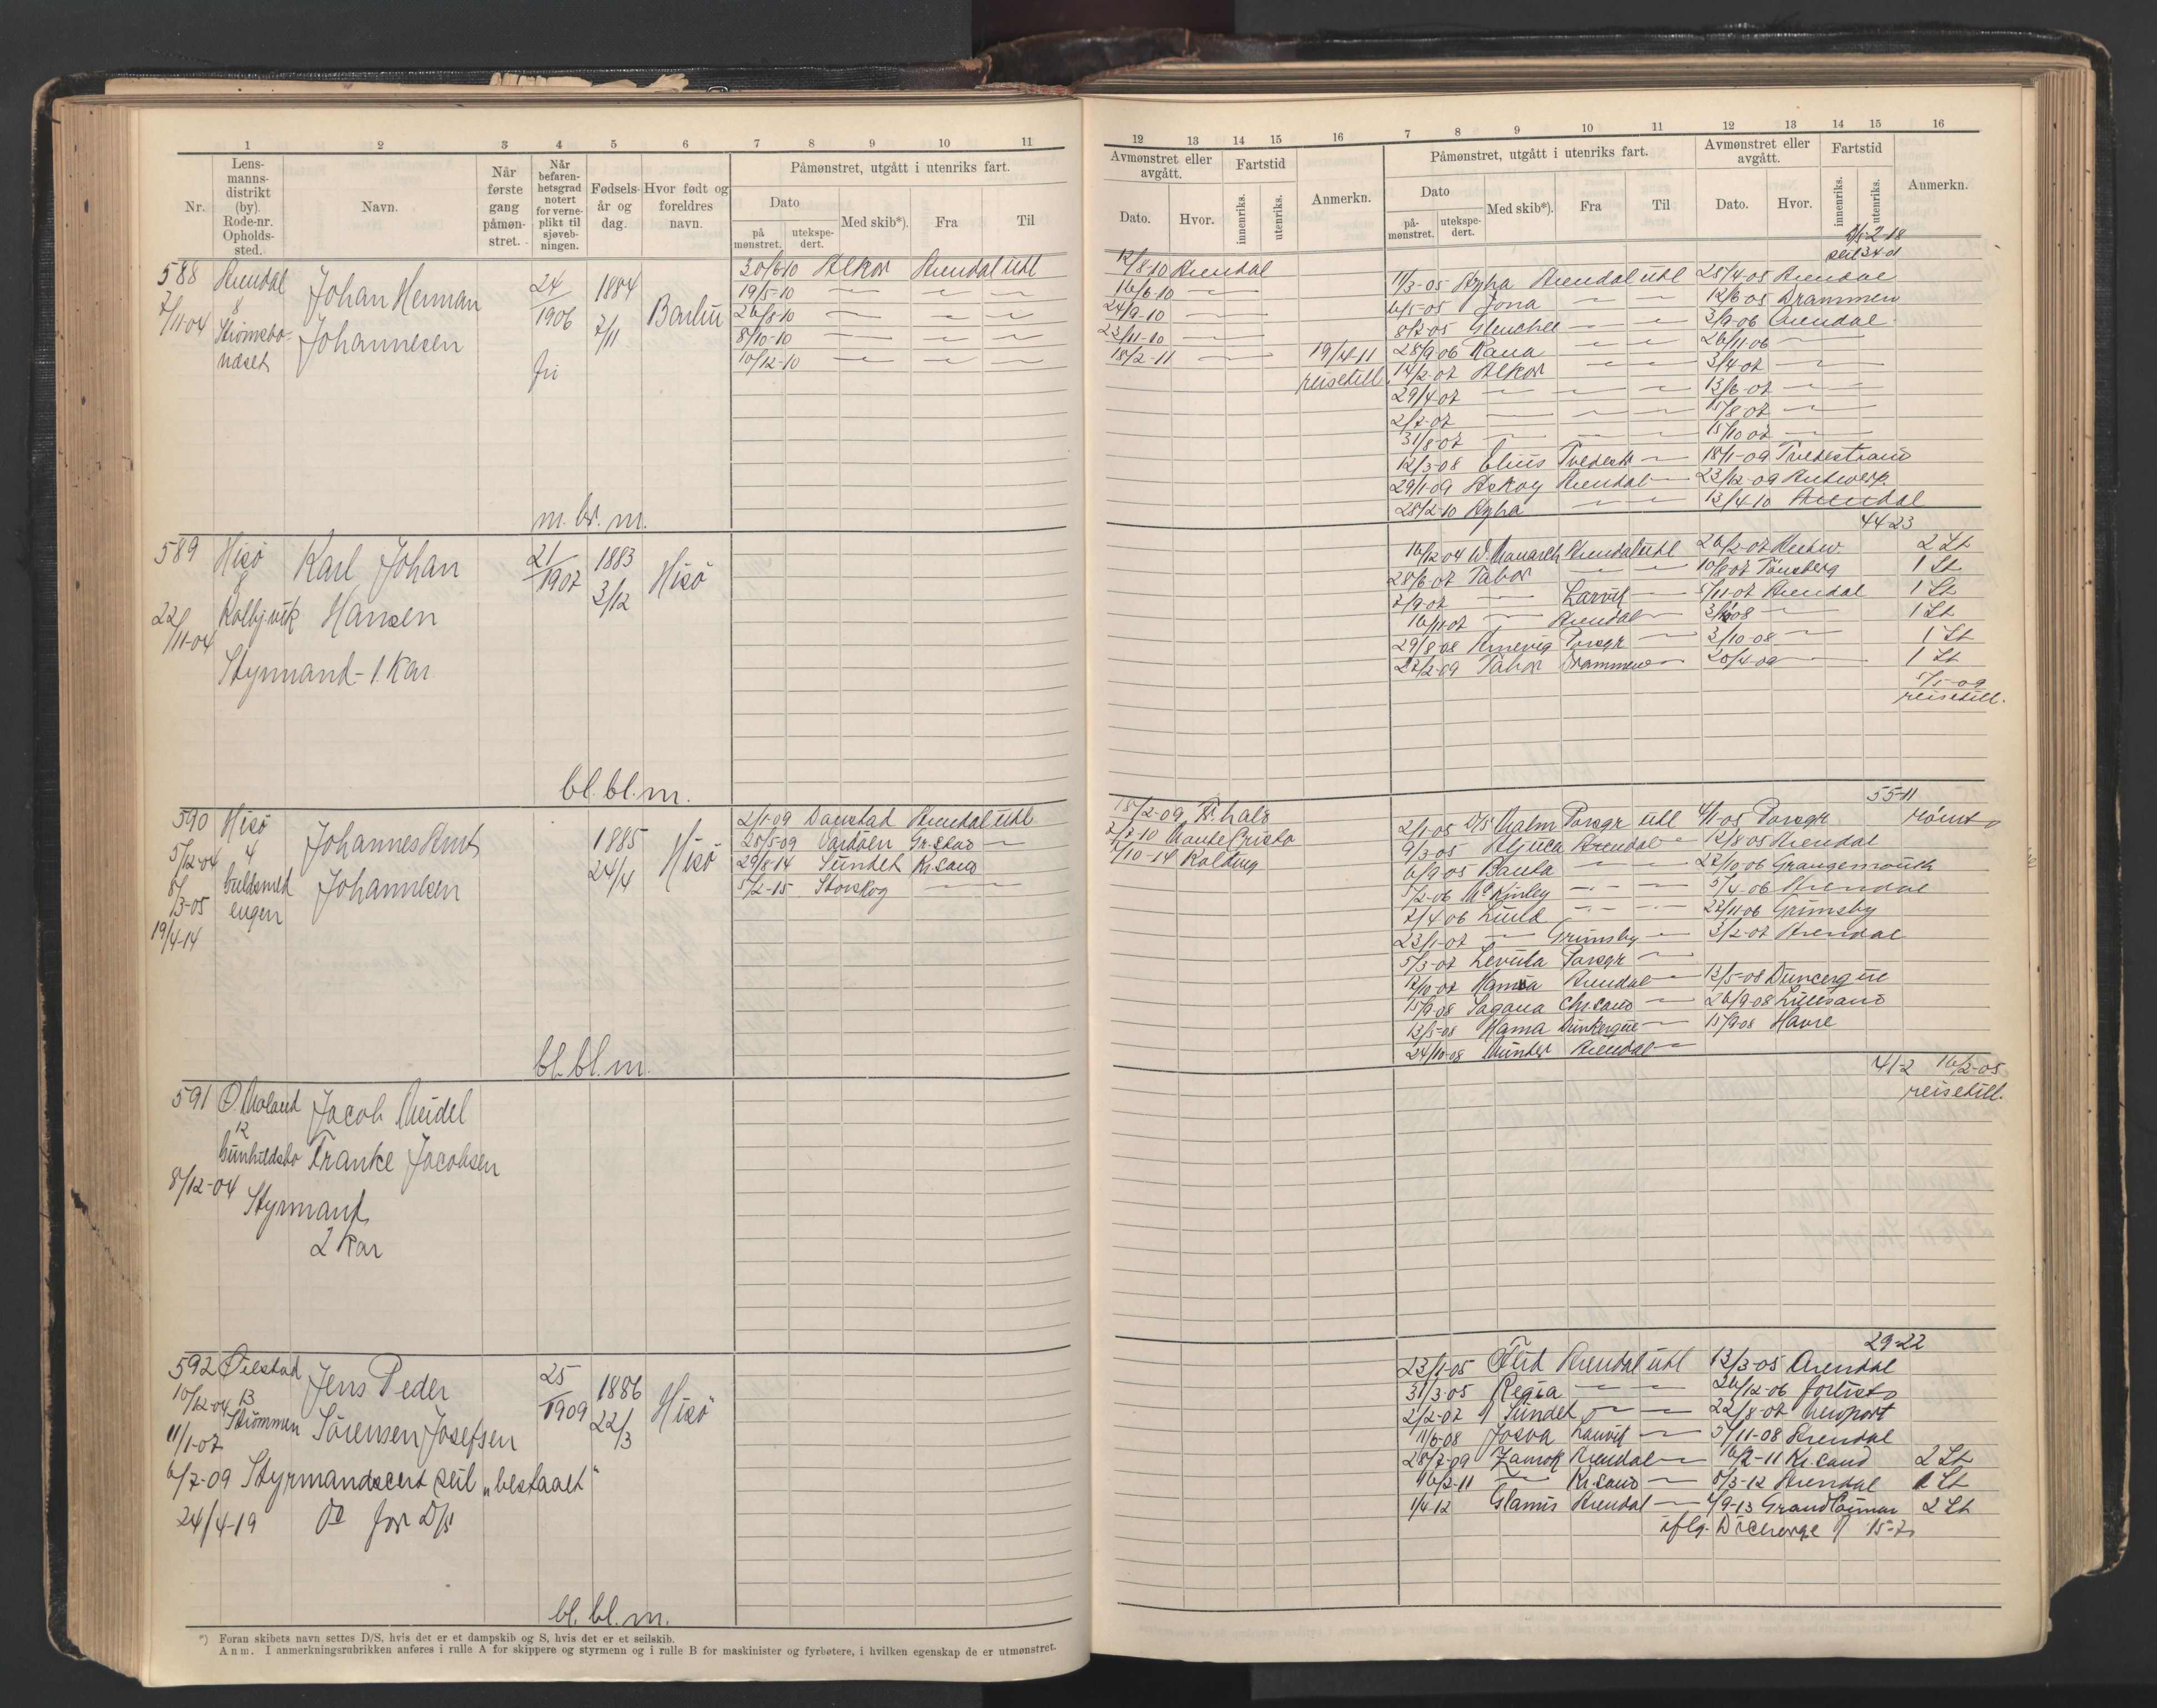 1 2 3 4 5 6 7 8 9 10 11
Nr.
Lens-
manns-
distrikt
(by).
Rode-nr.
Opholds-
sted.
Navn.
Når
første
gang
påmøn-
stret.
Når
befaren-
hetsgrad
notert
for verne-
plikt til
sjøveb-
ningen.
Fødsels-
år og
dag.
Hvor født og
foreldres
navn.
Påmønstret, utgått i utenriks fart.
Dato
på
mønstret.
utekspe-
dert.
Med skib*).
Fra
Til
588 Arendal
8
7/11-04 Strømsbo-
næset
Johan Herman
Johannesen
24/1906
fri
1884
7/11
Barbu
m. br. m.
30/6-10 Alkor Arendal Udl
19/5-10 — — —
26/8-10 — — —
8/10-10 — — —
10/12-10 — — —
589 Hisö
8
22/11-04 Kolbjvik
Karl Johan
Hansen
Styrmand - 1. Kar.
21/1907
1883
3/12
Hisö
bl. bl. m.
590 Hisö
5/12-04 4
8/3-05 Guldsmed
engen
19/4-14
Johannes Amt
Johannesen
1885
24/4
Hisö
bl. bl. m.
2/1-09 Danstad Arendal Udl
20/5-09 Vardöen Gr.stad —
29/8-14 Sundet Kr.sand
5/2-15 Storskog — —
591 Ö. Moland
12
Gunhildsbo
8/12-04
Jacob Meidel
Franke Jacobsen
Styrmand
2 Kar
592 Öiestad
10/12-04 13
11/1-07 Strömmen
Jens Peder
Sörensen Josefsen
6/7-09 Styrmandscert seil „bestaaet“
24/4-19 Do for D/S
25/1909
1886
22/3
Hisö
bl. bl. m.
*) Foran skibets navn settes D/S, hvis det er et dampskib og S, hvis det er et seilskib.
Anm. I anmerkningsrubrikken anføres i rulle A for skippere og styrmenn og i rulle B for maskinister og fyrbøtere, i hvilken egenskap de er utmønstret.
12 13 14 15 16 7 8 9 10 11 12 13 14 15 16
Avmønstret eller
avgått.
Dato.
Hvor.
Fartstid
innenriks.
utenriks.
Anmerkn.
Påmønstret, utgått i utenriks fart.
Dato
på-
mønstret.
utekspe-
dert.
Med skib*).
Fra
Til
Avmønstret eller
avgått.
Dato.
Hvor.
Fartstid
innenriks.
utenriks.
Anmerkn.
12/8-10 Arendal
16/6-10 —
24/9-10 —
23/11-10 —
18/2-11 — 19/4-11
reisetill.
11/3-05 Agha Arendal Udl 25/4-05 Arendal
6/5-05 Jona — — 12/6-05 Drammen
8/7-05 — — 3/9-06 Arendal
28/9-06 Rana — — 26/11-06 —
14/2-07 Alkor — — 3/4-07 —
29/4-07 — — — 13/6-07 —
2/7-07 — — — 15/8-07 —
31/8-07 — — — 15/10-07 —
12/3-08 Tvedestr — 18/1-09 Tvedestrand
29/1-09 Askoy Arendal — 23/12-09 Antwerp.
28/2-10 Agha — — 13/4-10 Arendal
44-23
16/12-04 W. Monarch Arendal Udl 26/2-07 Antw. 2 St
28/6-07 Tabor — — 10/8-07 Tönsberg 1 St
7/9-07 — Larvik — 5/11-07 Arendal 1 St
16/11-07 — Arendal — — 1 St
29/8-08 Arnevig Porsgr — 3/10-08 — 1 St
27/2-09 Tabor Drammen — 20/4-09 — 1 St
5/5-09
reisetill.
55-11
15/2-09 Fr.hals
2/7-10 Monte Cristo
7/10-14 Kolding
2/1-05 D/S Malm Porsgr Udl 4/1-05 Porsgr römt
9/3-05 Aljuca Arendal — 12/8-05 Arendal
6/9-05 Bauta — — 27/10-06 Grangemouth
5/2-06 Mc Kinley — — 5/4-06 Arendal
7/4-06 Lund — — 22/11-06 Grimsby
23/1-07 — Grimsby — 3/2-07 Arendal
5/3-07 Levuka Porsgr —
12/10-07 Hama Arendal — 13/5-08 Duncerque
15/9-08 Sagona Chr.sand — 26/9-08 Lillesand
13/5-08 Hama Dunkerque — 15/9-08 Havre
24/10-08 Arendal —
41-2 16/2-05
reisetill.
29-22
23/1-05 Arendal Udl 13/3-05 Arendal
31/3-05 Regia — — 26/12-06 forlist
2/2-07 Sundet — — 22/8-07 Newport
11/6-08 Josva Larvik — 5/11-08 Arendal
28/7-09 Arendal — 16/2-11 Kr.sand 2 St
16/2-11 — Kr.sand — 8/3-12 Arendal 2 St
1/4-12 Glamis Arendal — 4/9-13 2 St
iflg. Dicherge 15-7